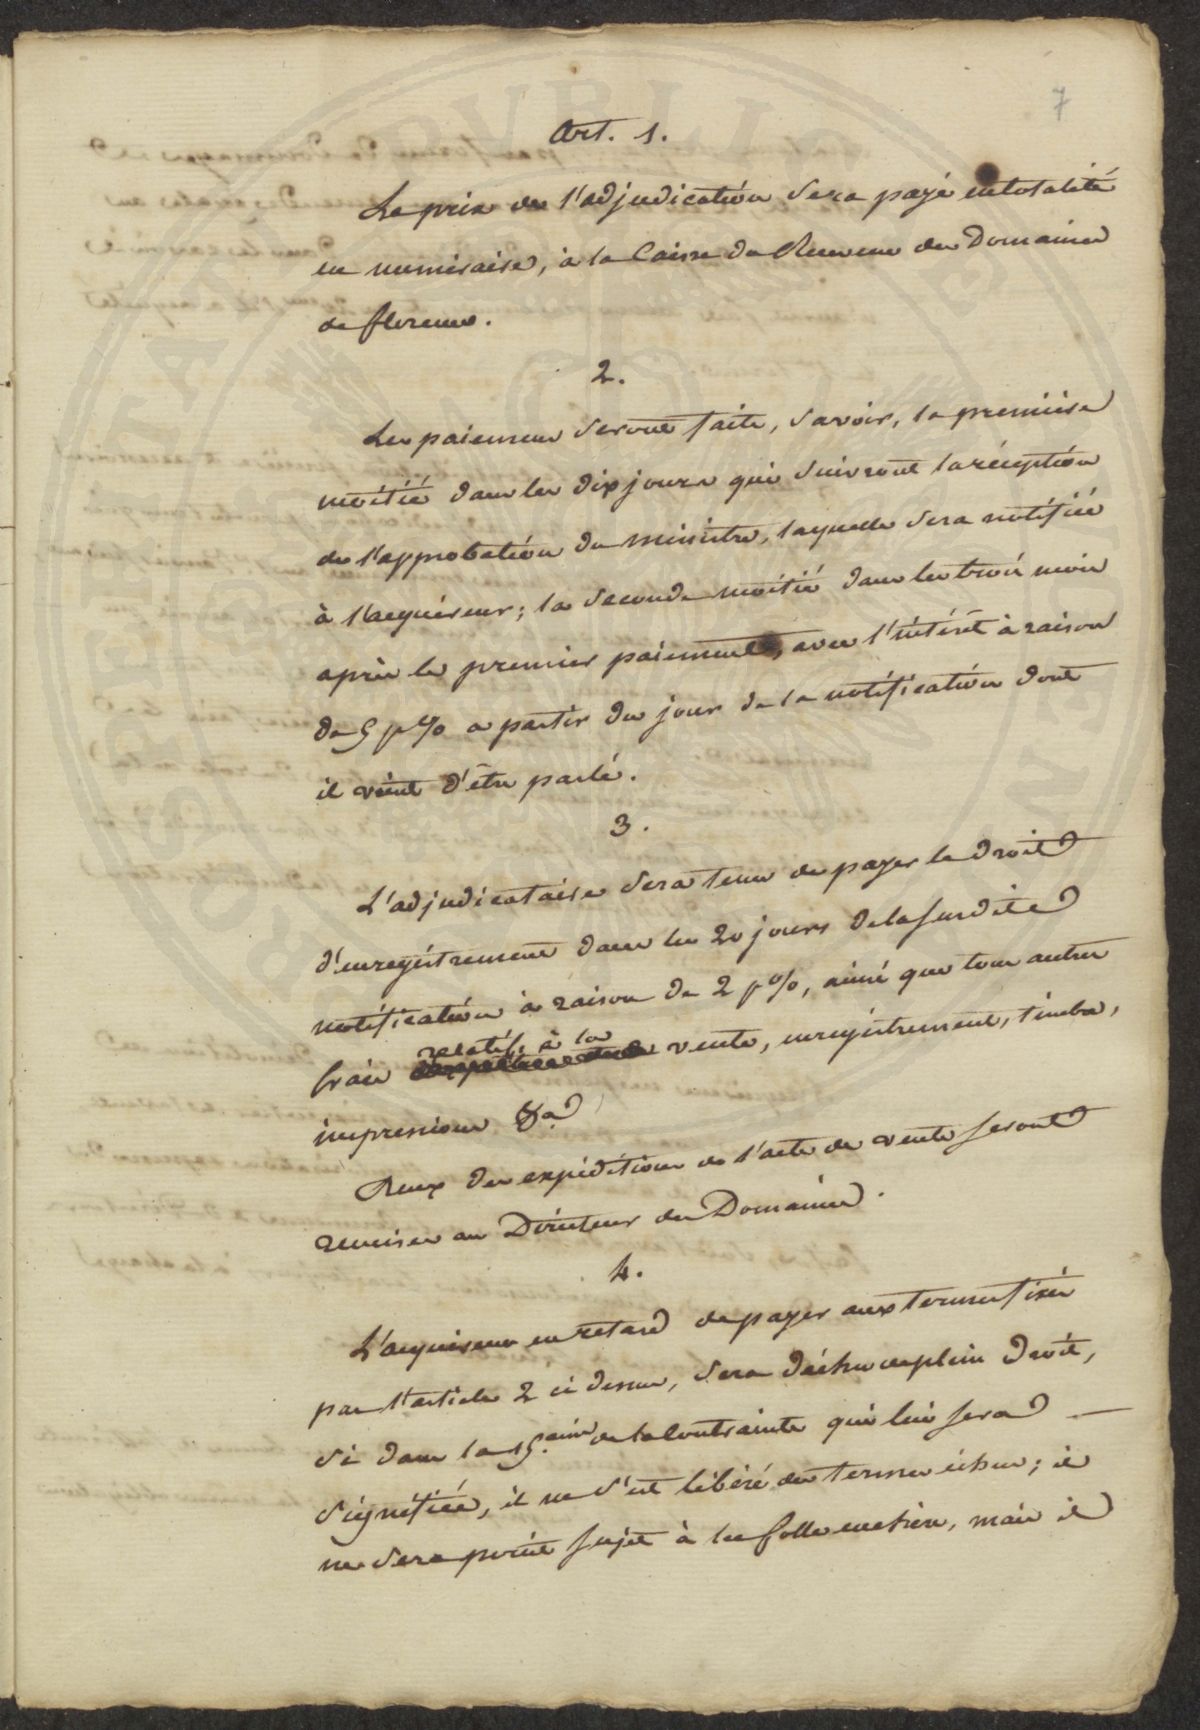 7
Art. 1.
Le prix de l'adjudication sera payé en totalité
en numéraire, à la Caisse du Receveur des Domaines
de florence.
2.
Les paiemens seront faits, savoir, la première
moitié dans les dix jours qui suivront la réception
de l'approbation du ministre, laquelle sera notifiée
à l'acquéreur; la seconde moitié dans les trois mois
après le premier paiement, avec l'intérêt à raison
de 5 p% a partir du jour de la notification dont
il vient d'être parlé.
3.
L'adjudicataire sera tenu de payer le droit
d'enregistrement dans les 20 jours de la susdite
notification à raison de 2 p%, ainsi que tous autres
frais relatifs à la vente, enregistrement, timbre,
impressions &a
Deux des expéditions de l'acte de vente seront
remises au Directeur des Domaines.
4.
L'acquéreur en retard de payer aux termes fixés
par l'article 2 ci dessus, sera déchu de plein droit,
si dans la 15.aine de la Contrainte qui lui sera
signifiée, il ne s'est libéré des termes échus; il
ne sera point sujet à la folle enchère, mais il